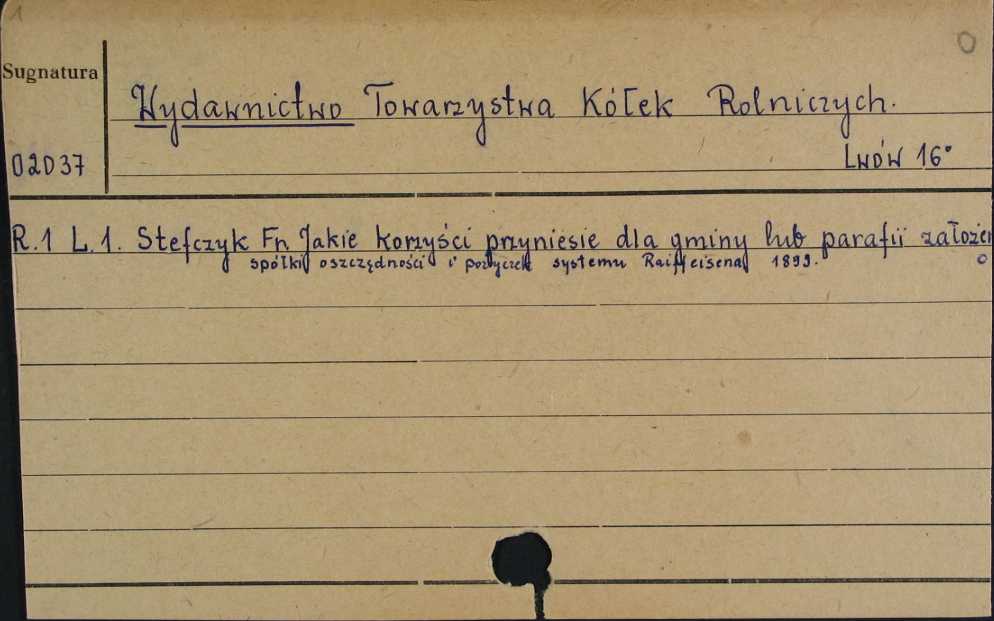 1
0
Sugnatura
Wydawnictwo Towarzystwa Kółek Rolniczych.
02D37
Lwów 16°
R.1 L.1. Stefczyk Fr. Jakie korzyści przyniesie dla gminy lub parafii założen
spółki oszczędności i pożyczek systemu Raiffeisena 1899.